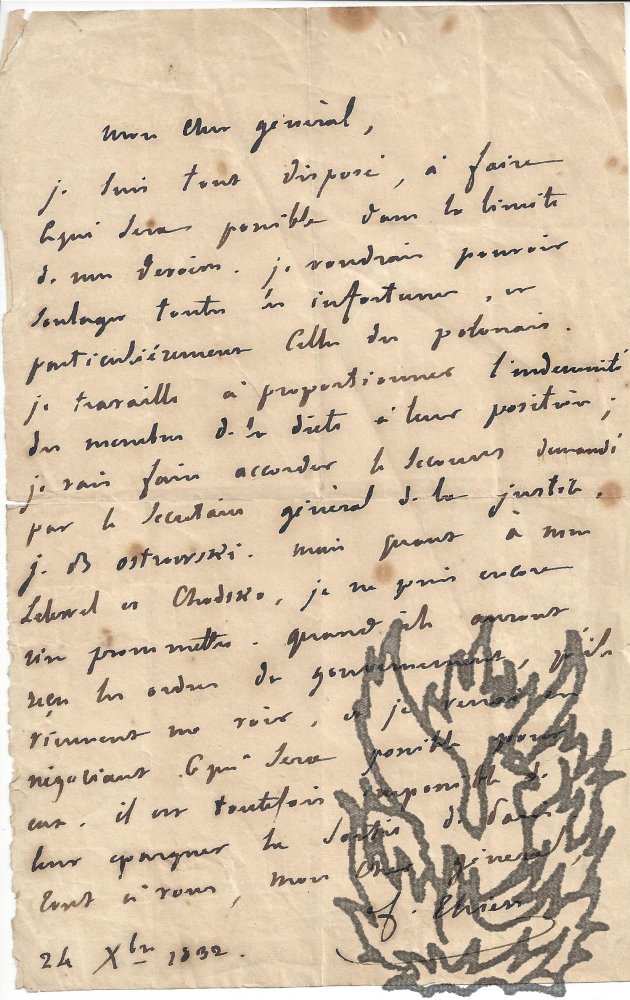 mon cher général,
je suis tout disposé, à faire
ce qui sera possible dans la limite
de mes devoirs. je voudrais pouvoir
soulager toutes les infortunes, et
particulièrement celles des polonais.
je travaille à proportionner l'indemnité
des membres de la diète à leur position ;
je vais faire accorder le secours demandé
par le secrétaire général de la justice,
j. B ostrowski. mais quant à mm
Lelewel et Chodsko, je ne puis encore
rien promettre. quand ils auront
reçu les ordres du gouvernement, qu'ils
viennent me voir, et je verrai en
négociant ce qui sera possible pour
eux. il est toutefois impossible de
leur épargner la sortie de Paris
tout à vous, mon cher général,
24 Xbre 1832.